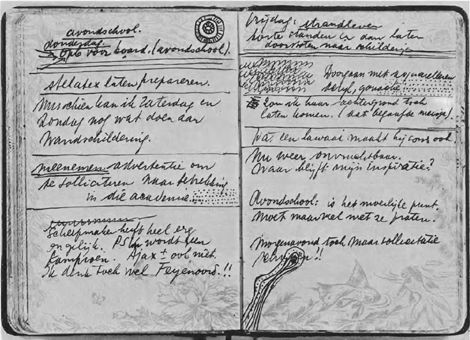 avondschool.
donderdag
voor
(avondschool).
stellatex laten prepareren.
Misschien kan ik Zaterdag en
Zondag nog wat doen aan
Wandschildering.
meenemen advertentie om
te solliciteren naar betrekking
in die academie
Scheepmaker heeft heel erg
ongelijk. PSV wordt geen
kampioen. Ajax ook niet.
Ik denk toch wel Feyenoord!!
Vrijdag: strandleven
in dan laten
naar schilderij
Doorgaan met aquarelleren
gouache
zou ik haar achtergrond toch
laten komen. (dat begaafde meisje).
Wat een lawaai maakt hij
Nu weer
Waar blijft mijn inspiratie?
Avondschool: is het moeilijke punt.
Moet maar wel met ze praten.
Morgenavond toch maar sollicitatie